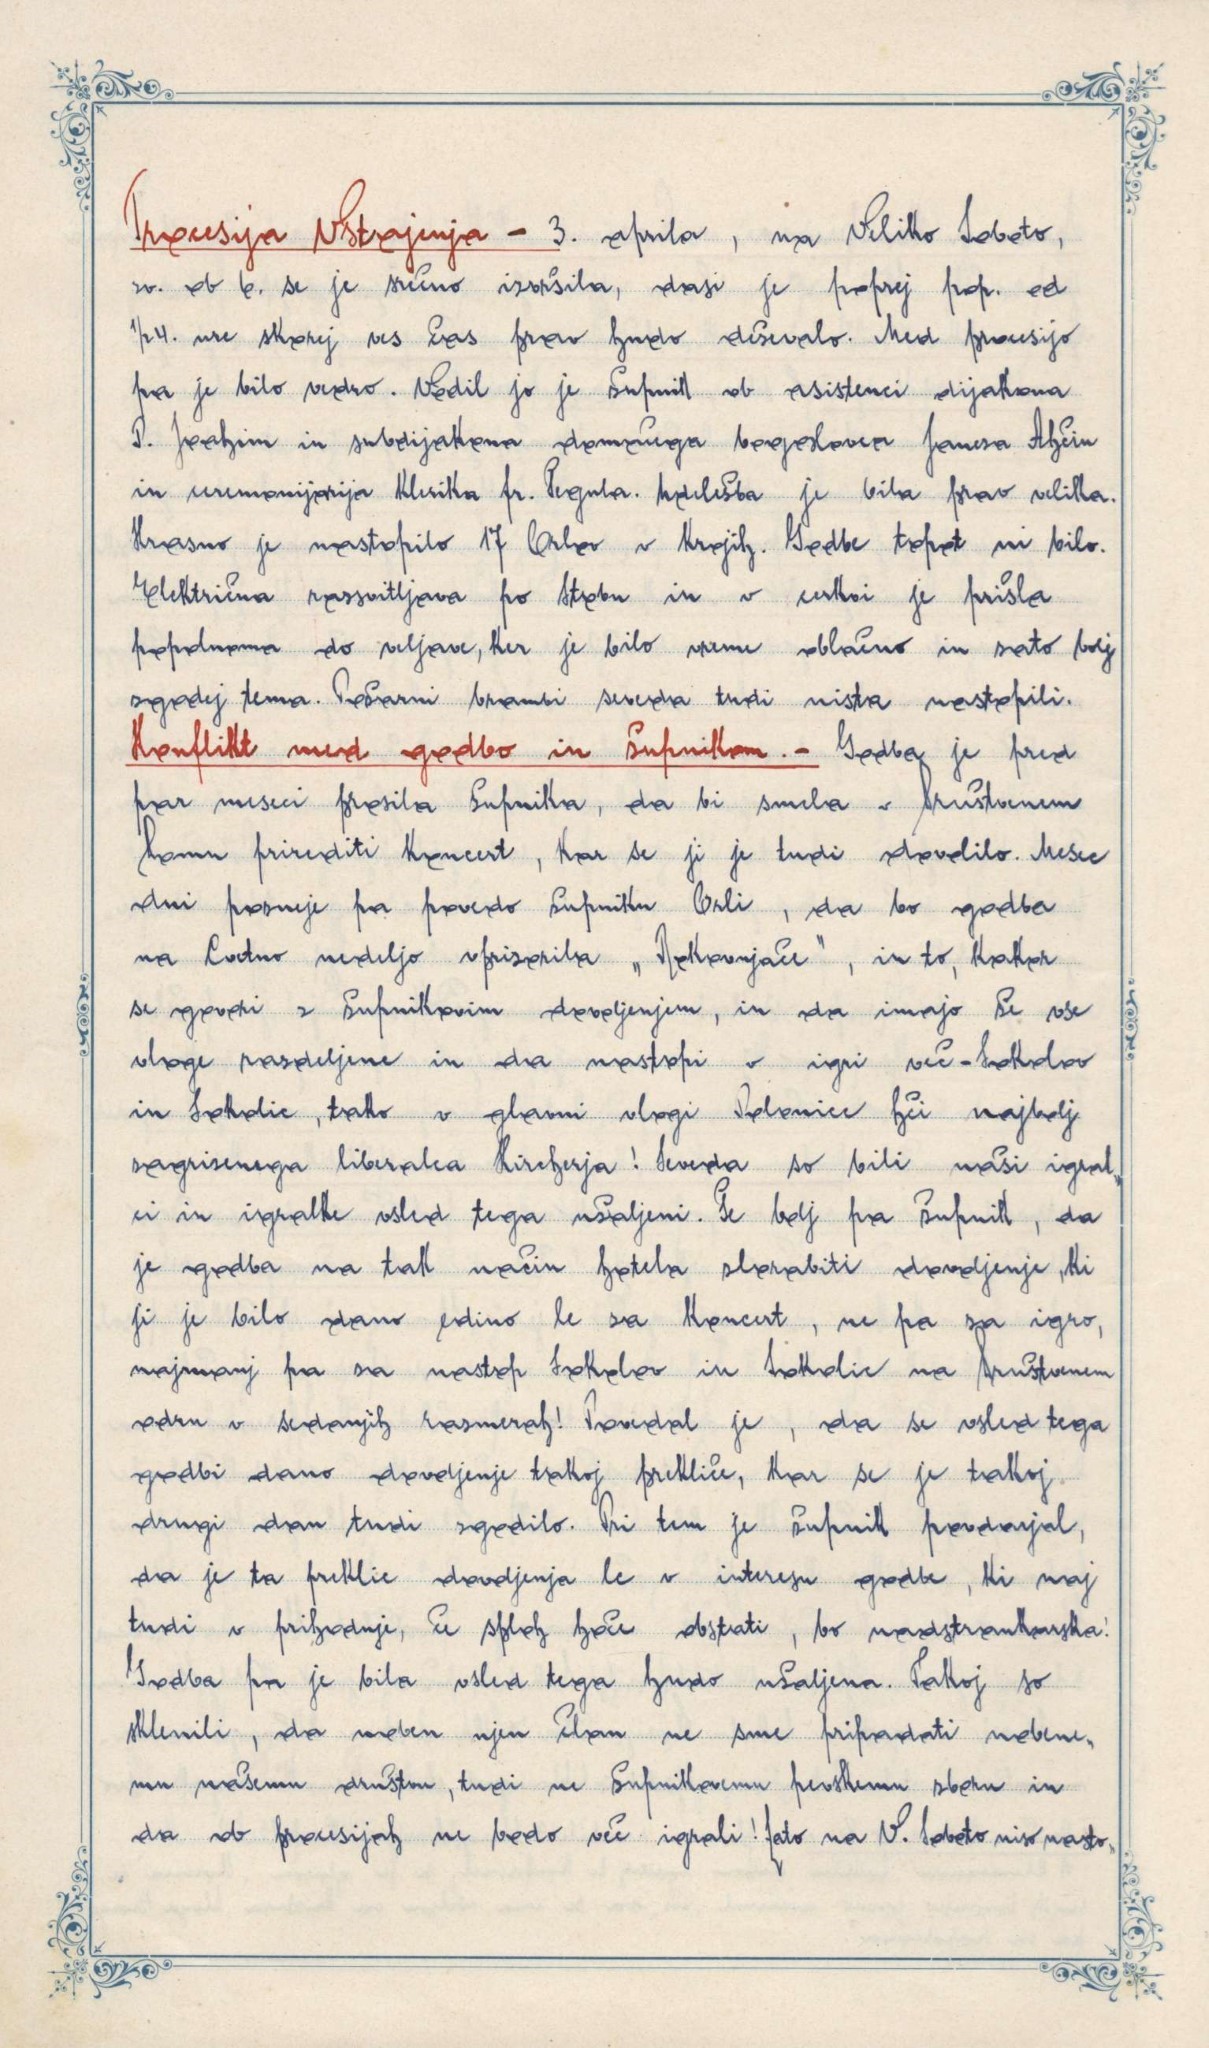 Procesija Vstajenja - 3. aprila, na Veliko Soboto,
zv. ob 6. se je srečno izvršila, dasi je poprej pop. od
1/2 4. ure skorej ves čas prav hudo deževalo. Med procesijo
pa je bilo vedro. Vodil jo je župnik ob asistenci dijakona
P. Joahim in subdijakona domačega bogoslovca Janeza Ahčin
in ceremonijarja klerika fr. Pegula. Udeležba je bila prav velika.
Krasno je nastopilo 17 Orlov v krojih. Godbe topot ni bilo.
Električna razsvitljava po stebu in v cerkvi je prišla
popolnoma do veljave, ker je bilo vreme oblačno in zato bolj
zgodej tema. Požarni brambi seveda tudi nista nastopili.
Konflikt med godbo in župnikom. - Godba je pred
par meseci prosila župnika, da bi smela v Društvenem
Domu prirediti koncert, kar se ji je tudi dovolilo. Mesec
dni pozneje pa povedo župniku Orli, da bo godba
na Cvetno nedeljo vprizorila „Rokovnjače", in to, kakor
se govori z župnikovim dovoljenjem, in da imajo že vse
vloge razdeljene in da nastopi v igri več - Sokolov
in Sokolic, tako v glavni vlogi Polonice hči najbolj
zagrizenega liberalca Kircherja! Seveda so bili naši igral„
ci in igralke vsled tega užaljeni. Še bolj pa župnik, da
je godba na tak način hotela zlorabiti dovoljenje, ki
ji je bilo dano edino le za koncert, ne pa za igro,
najmanj pa za nastop Sokolov in Sokolic na Društvenem
odru v sedanjih razmerah! Povedal je, da se vsled tega
godbi dano dovoljenje takoj prekliče, kar se je takoj
drugi dan tudi zgodilo. Pri tem je župnik povdarjal,
da je ta preklic dovoljenja le v interesu godbe, ki naj
tudi v prihodnje, če sploh hoče obstati, bo nadstrankarska!
Godba pa je bila vsled tega hudo užaljena. Takoj so
sklenili, da noben njen član ne sme pripadati nobene„
mu našemu društvu, tudi ne župnikovemu pevskemu zboru in
da ob procesijah ne bodo več igrali! Zato na V. Soboto niso nasto„